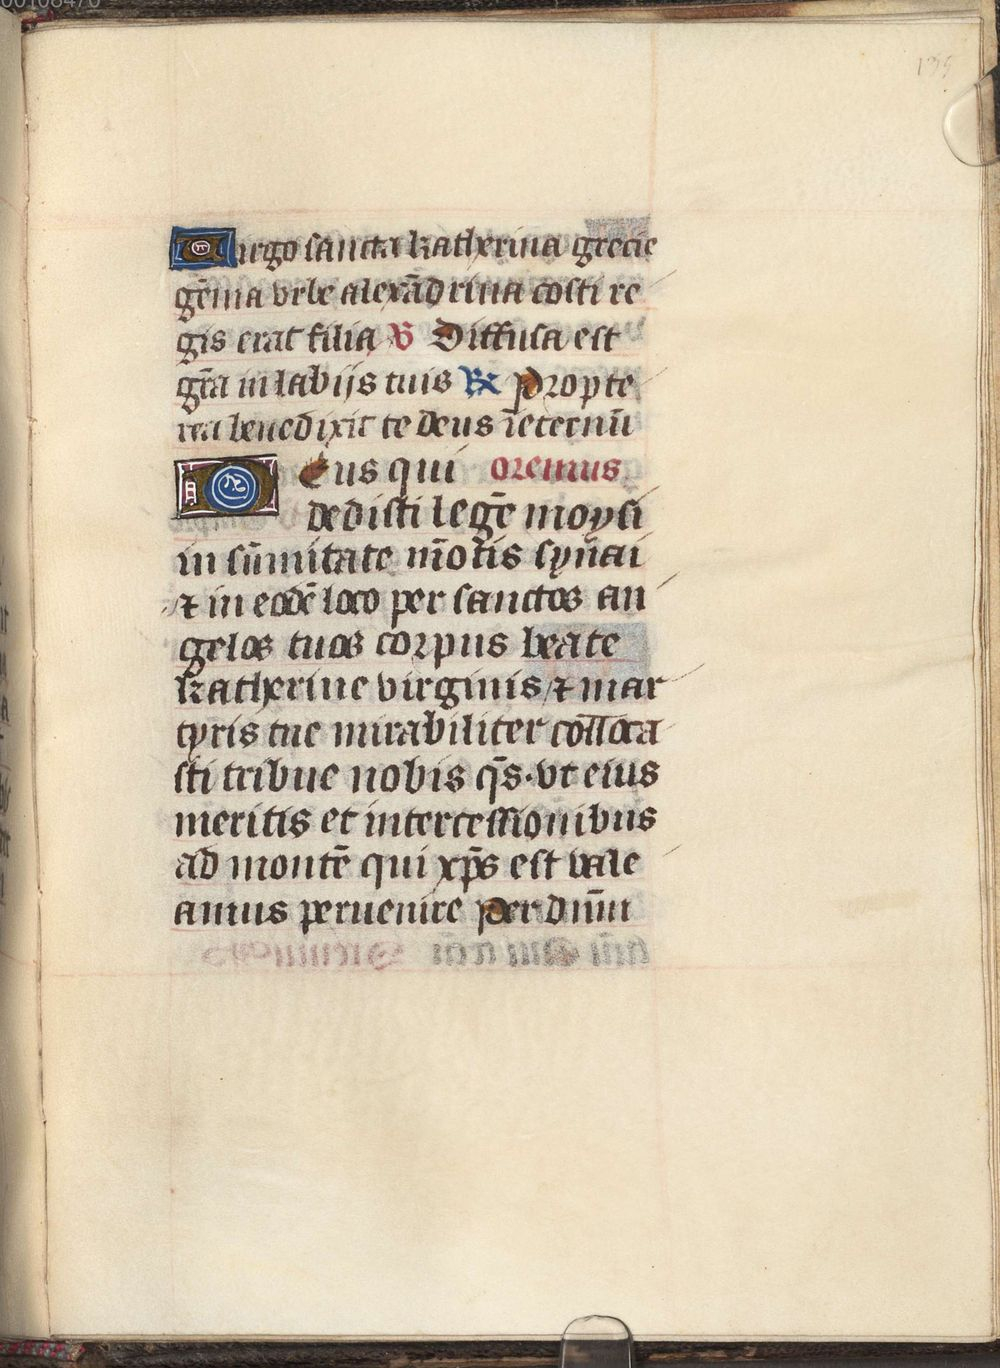 Virgo sancta katherina grecie
gēma vrbe alexādrina costi re
gis erat filia ℣ Diffusa est
gr̄a in labijs tuis ℟ Propte
rea benedixit te deus īeternū
Deus qui oremus
dedisti legē moysi
in sūmitate mōtis synai
⁊ in eodē loco per sanctos an
gelos tuos corpus beate
katherine virginis ⁊ mar
tyris tue mirabiliter colloca
sti tribue nobis q̄s. vt eius
meritis et intercessionibus
ad montē qui xp̄s est vale
amus peruenire Per dn̄m